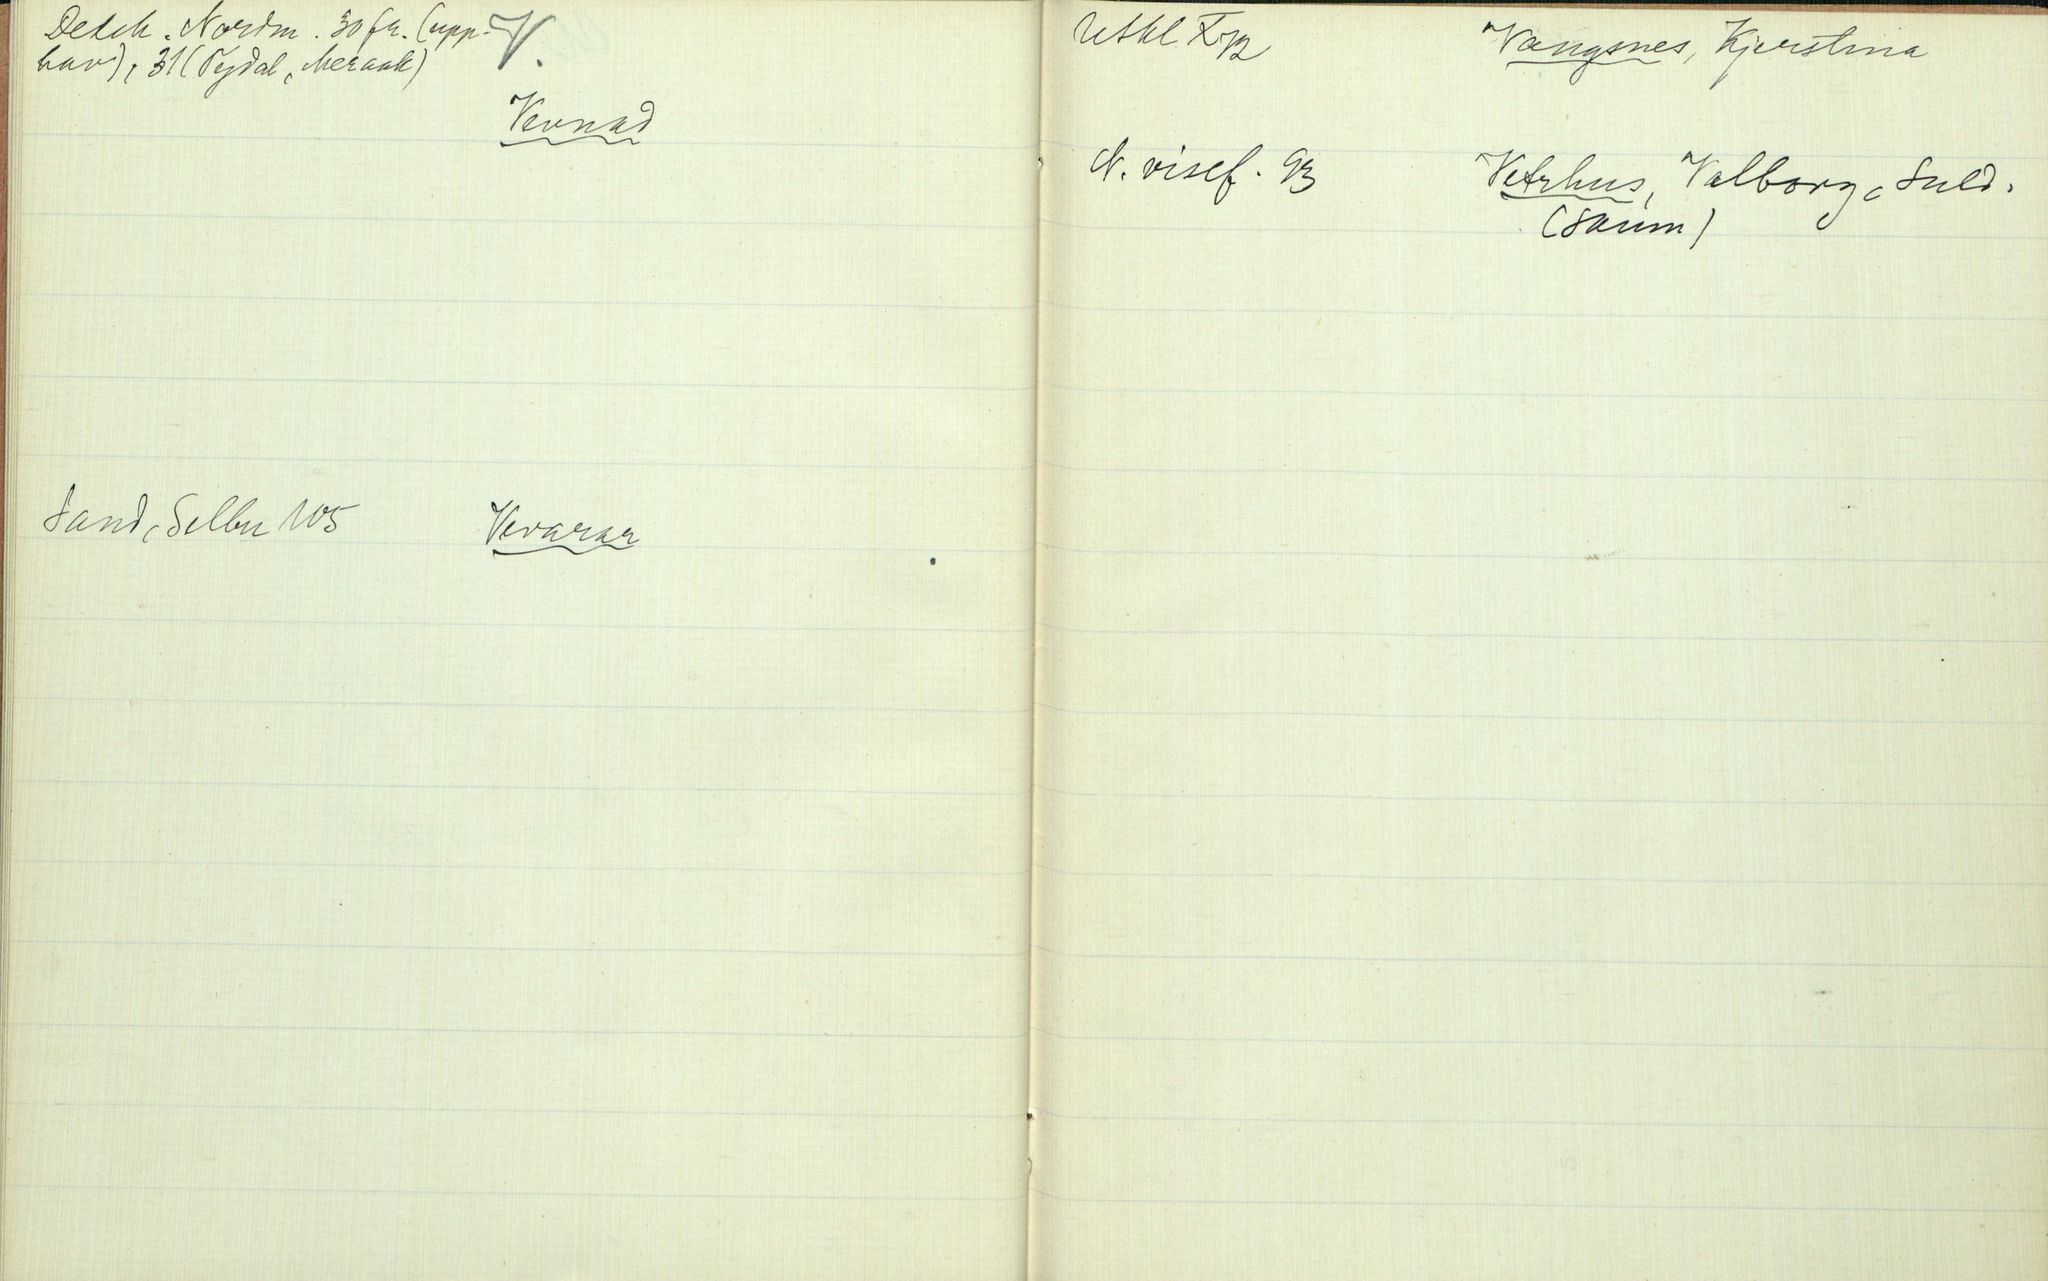 V.
Detch. Nordm. 30 fr. (upp-
hav), 31 (Tydal, Meraak)
Vevnad
Sand, Selbu 105
Vevarar
Utkl X, 72
Vangsnes, Kjerstina
N. visef. 93
Vetrhus, Valborg, Suld.
(saum)